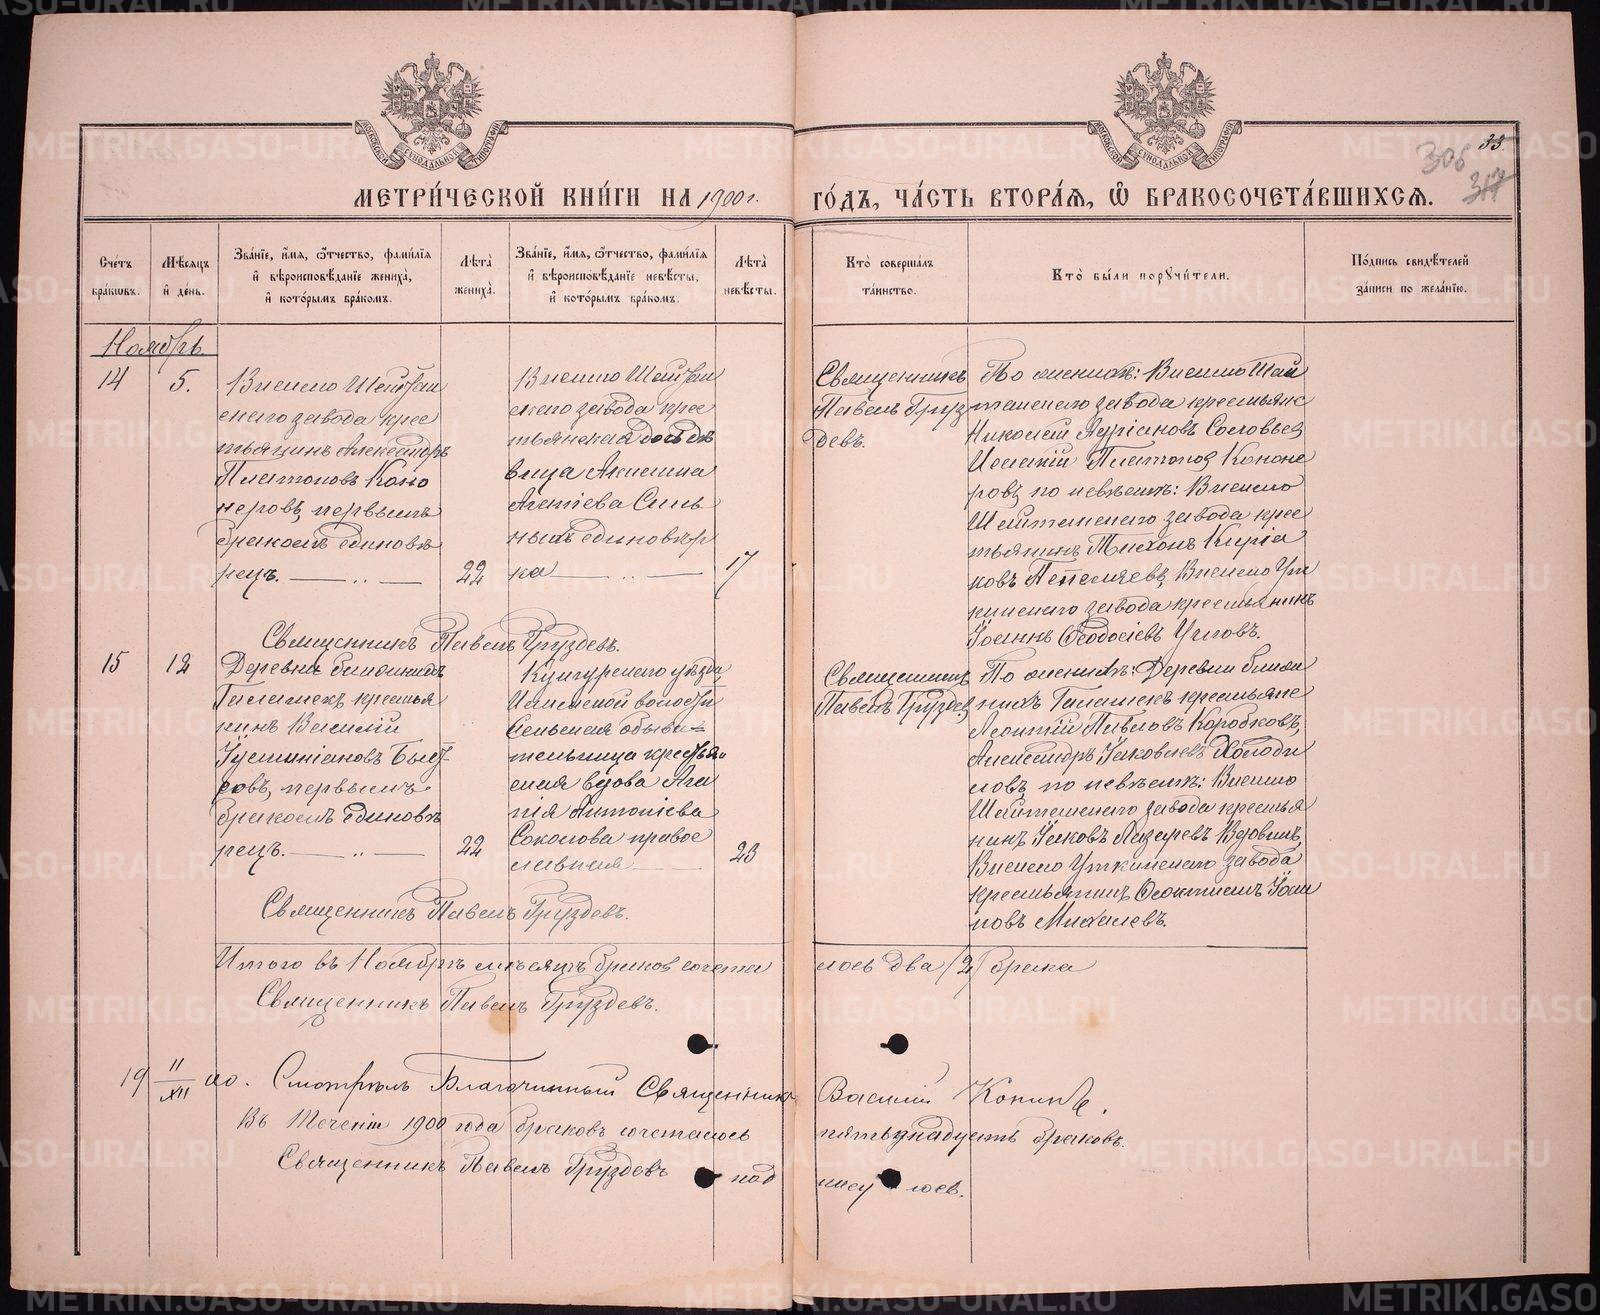 МОСКОВСКОЙ СѴНОДАЛЬНОЙ ТИПОГРАФІИ
МОСКОВСКОЙ СѴНОДАЛЬНОЙ ТИПОГРАФІИ
306 33.
317
МЕТРИ́ЧЕСКОЙ КНИ́ГИ НА 1900 г. ГО́ДЪ, ЧА́СТЬ ВТОРА́Я, Ѽ БРАКОСОЧЕТА́ВШИХСЯ.
Сче́тъ бра́кѡвъ.
Мѣ́сяцъ и҆ де́нь.
Зва́нїе, и҆́мя, ѻ҆́тчество, фами́лїя и҆ вѣроисповѣ́данїе жениха̀, и҆ кото́рымъ бра́комъ.
Лѣта̀ жениха̀.
Зва́нїе, и҆́мя, ѻ҆́тчество, фами́лїя и҆ вѣроисповѣ́данїе невѣ́сты, и҆ кото́рымъ бра́комъ.
Лѣта̀ невѣ́сты.
Кто̀ соверша́лъ та́инство.
Кто̀ бы́ли порꙋчи́тели.
По́дпись свидѣ́телей за́писи по жела́нїю.
Ноябрь.
14
5.
Висимо Шайтан
скаго завода крес
тьянинъ Александръ
Платоновъ Коно
неровъ, первымъ
бракомъ единовѣ
рецъ.
22
Висимо Шайтан
скаго завода крес
тьянская дочь дѣ
вица
Сень
ныхъ единовѣр
ка
17
Священникъ
Павелъ Груз
девъ.
По женихѣ: Висимо Шай
танскаго завода крестьяне
Николай Адріановъ Соловьевъ,
Платонов Кононе
ровъ, по невѣстѣ: Висимо
Шайтанскаго завода крес
тьянинъ Тихонъ Киріа
ковъ Висимо Ут
кинскаго завода крестьянинъ
Іоаннъ Ѳеодосіевъ
Священникъ Павелъ Груздевъ.
15
12
Деревни ближнихъ
Галашекъ крестья
нинъ Василій
Іустиніановъ
совъ, первымъ
бракомъ единовѣ
рецъ.
22
Кунгурскаго уѣзда
волости
сельская обыва=
тельница крестья
ская вдова Ага
пія Антоніева
Соколова правос
лавная
23
Священникъ
Павелъ Груздевъ,
По женихѣ: Деревни ближ
нихъ Галашекъ крестьяне
Леонтій Павловъ Коробковъ,
Александръ Іаковлевъ Холоди
ловъ, по невѣстѣ: Висимо
Шайтанскаго завода крестья
нинъ Іаковъ Лазаревъ Вдовинъ,
Висимо Уткинскаго завода
крестьянинъ Ѳеоктистъ Іоан
новъ Михалевъ.
Священникъ Павелъ Груздевъ.
Итого въ Ноябрѣ мѣсяцѣ браков сочета лось два /2/ брака
Священникъ Павелъ Груздевъ.
19 11/XII 00. Смотрѣлъ Благочинный Священникъ Василій
Въ теченіи 1900 года браковъ сочеталось пятьнадцать браковъ.
Священникъ Павелъ Груздевъ под
METRIKI.GASO-URAL.RU